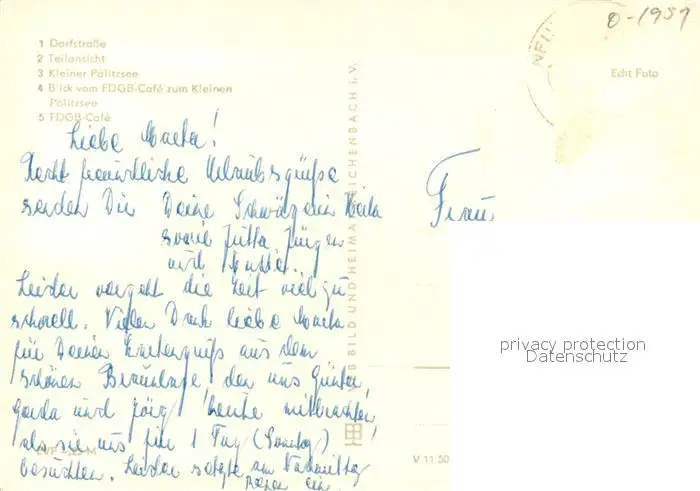 0-1957
Echt Foto
1 Dorfstraße
2 Teilansicht
3 Kleiner Pälitzsee
4 Blick vom FDGB-Café zum Kleinen
Pälitzsee
5 FDGB-Café
Liebe Marta!
Recht freundliche Urlaubsgrüße
senden Dir Deine Schwägerin Herta
sowie Jutta, Jürgen
und Mutter.
Leider vergeht die Zeit viel zu
schnell. Vielen Dank liebe Marta
für Deinen Kartengruß aus dem
schönen Braunlage, den uns Günter,
Gerda und Jörg heute mitbrachten,
als sie uns für 1 Tag (Sonntag)
besuchten. Leider setzte am Nachmittag
Regen ein.
Frau
VEB BILD UND HEIMAT REICHENBACH i. V.
V 11 50
privacy protection
Datenschutz